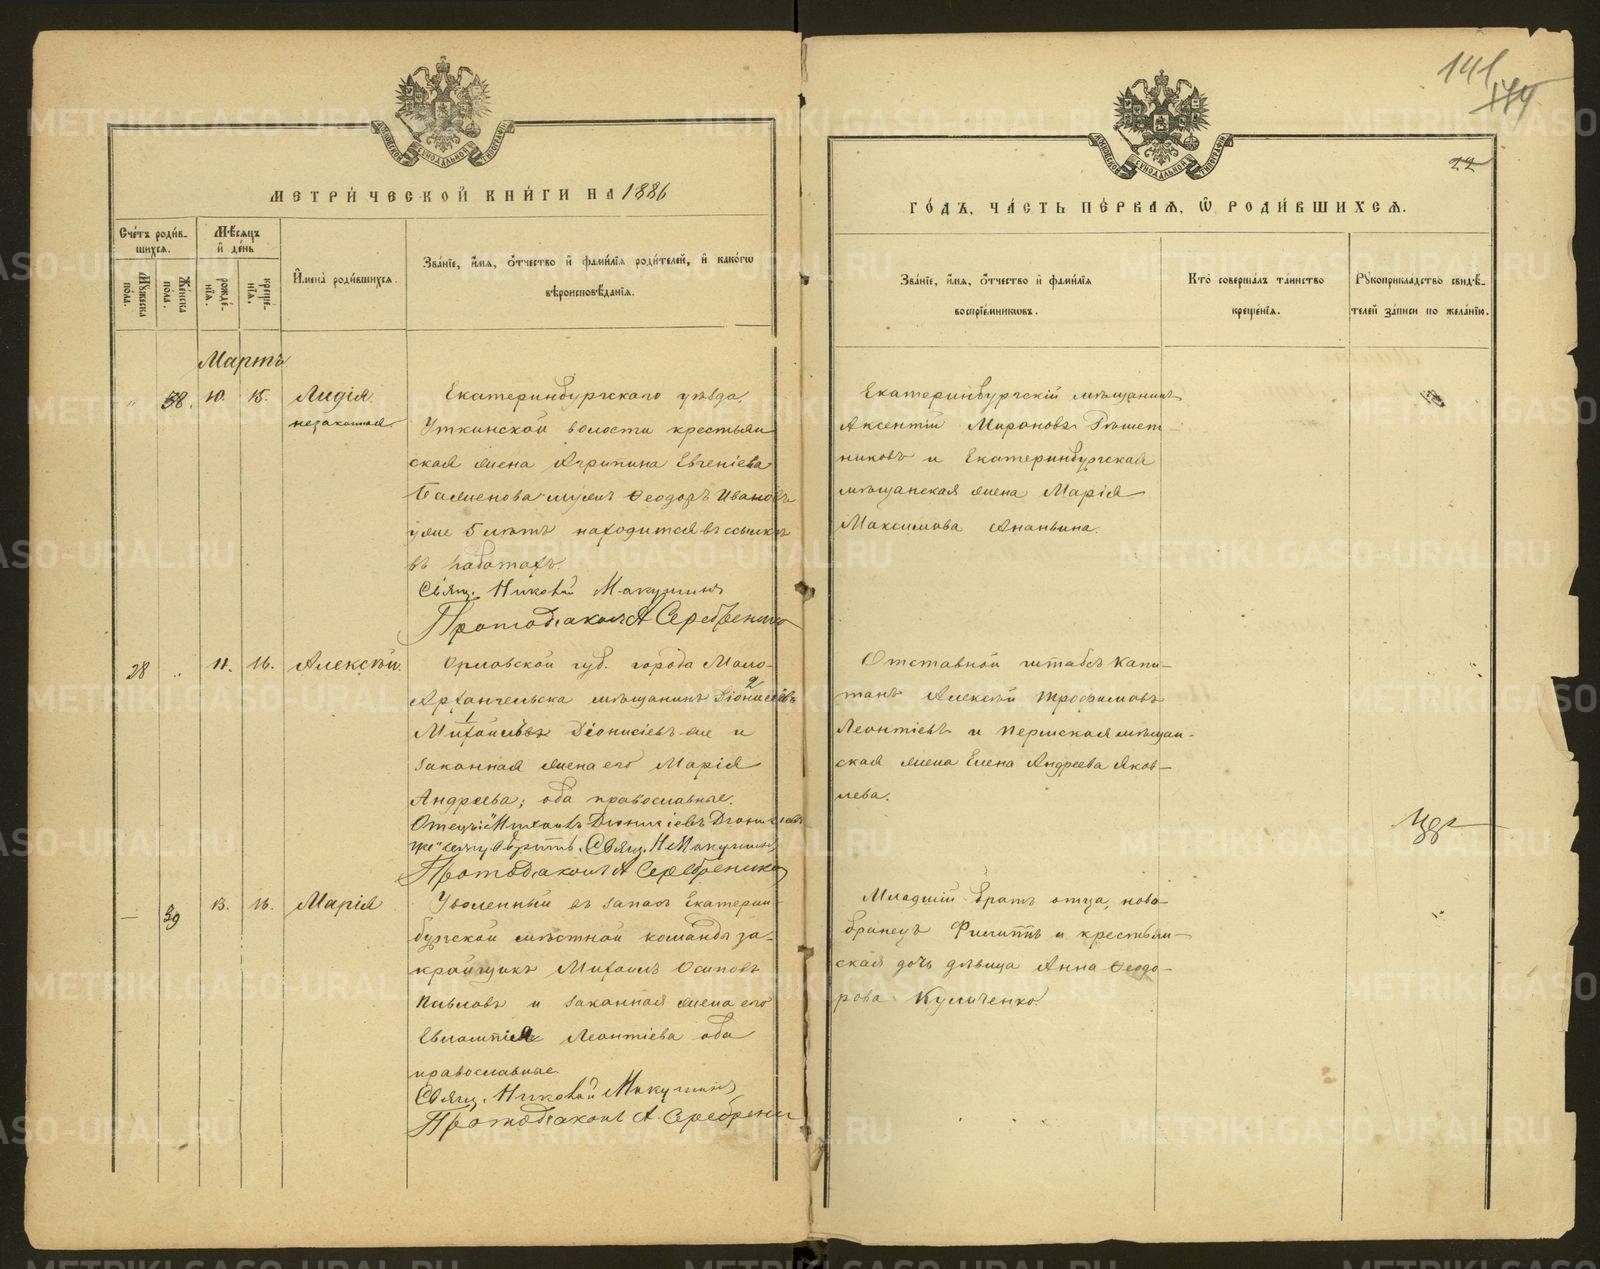 141
174
22
МЕТРИ́ЧЕСКОЙ КНИ́ГИ НА 1886
ГО́ДЪ, ЧА́СТЬ ПЕ́РВАѦ, Ѡ҆ РОДИ́ВШИХСѦ.
Сче́тъ роди́в-
шихсѧ.
Мꙋ́жеска по́ла.
Же́нска по́ла.
Мѣ́сѧцъ
и҆ де́нь
рожде́-
нїѧ.
креще́-
нїѧ.
И҆мена̀ роди́вшихсѧ.
Зва́нїе, и҆́мѧ, ѻ҆́тчество и҆ фами́лїѧ роди́телей, и҆ како́гѡ
вѣроисповѣ́данїѧ.
Зва́нїе, и҆́мѧ, ѻ҆́тчество и҆ фами́лїѧ
воспрїе́мникѡвъ.
Кто̀ соверша́лъ та́инство
креще́нїѧ.
Рꙋкоприкла́дство свидѣ́-
телей за́писи по жела́нїю.
Мартъ
" 38. 10. 15. Лидія
незаконная
Екатеринбургскаго уѣзда,
Уткинской волости крестьян
ская жена Агрипина Евгеніева
мужъ Ѳеодоръ Ивановъ
уже 5 лѣтъ находится въ ссылкѣ
въ работахъ.
Свящ. Никовай Макушинъ
Протодіаконъ А Серебренико
Екатеринбургскій мѣщанинъ
Аксентій Мироновъ Рѣшет-
никовъ и Екатеринбургская
мѣщанская жена Марія
Максимова Ананьина.
28 " 11. 16. Алексѣй.
Орловской губ. города Мало-
Архангельска мѣщанинъ Діонисіевъ
Михаилъ Діонисіевъ-же и
законная жена его Марія
Андреева; оба православные.
Отецъ "Михаилъ Діонисіевъ Діонисіевъ
же" Свящ. Н Макушинъ
Протодіаконъ А Серебренико
Отставной штабсъ капи-
танъ Алексѣй Трофимовъ
Леонтіевъ и Пермская мѣщан-
ская жена Елена Андреева Яков-
лева.
— 39 13. 16. Марія
Уволенный въ запасъ Екатерин
бургской мѣстной команды за-
кройщикъ Михаилъ Осиповъ
Павловъ и законная жена его
Евлампія Леонтіева оба
православные.
Свящ. Никовай Макушинъ
Протодіаконъ А. Серебрени
Младшій братъ отца, ново-
бранецъ Филиппъ и крестьян-
ская дочь дѣвица Анна Ѳеодо-
рова Кумиченко
METRIKI.GASO-URAL.RU